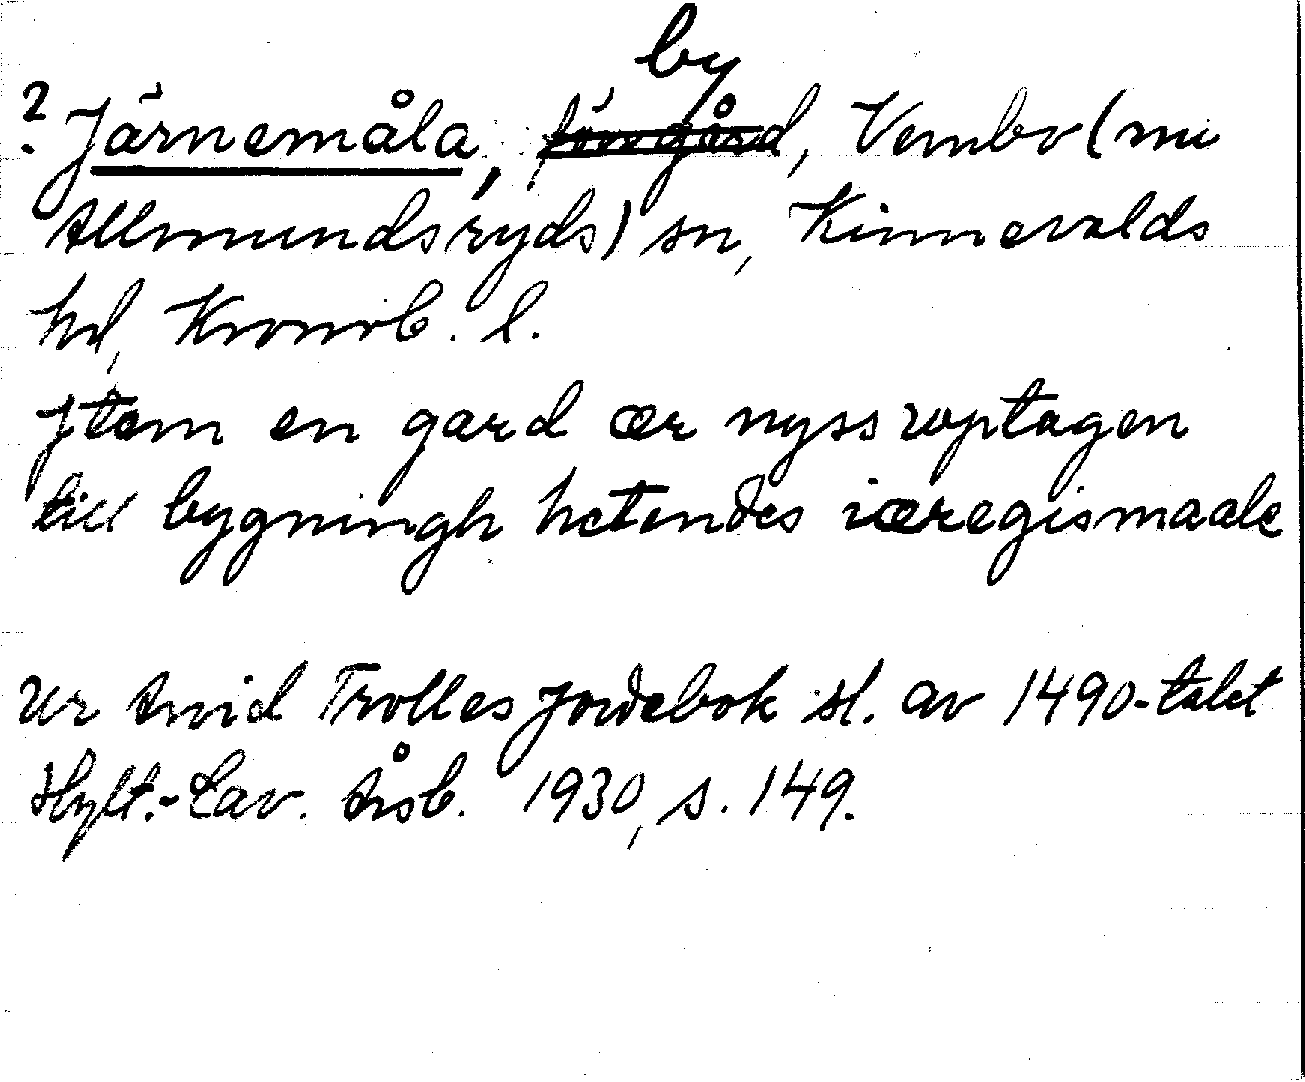 by
? Järnemåla, förr gård, Vembo (nu
Allmundsryds) sn, Kinnevalds
hd, Kronob. l.
Jtem en gard ær nyss woptagen
till bygningh hetendes iæregismaale
Ur Arvid Trolles Jordebok sl. av 1490-talet
Hylt.-Cav. Årsb. 1930, s. 149.